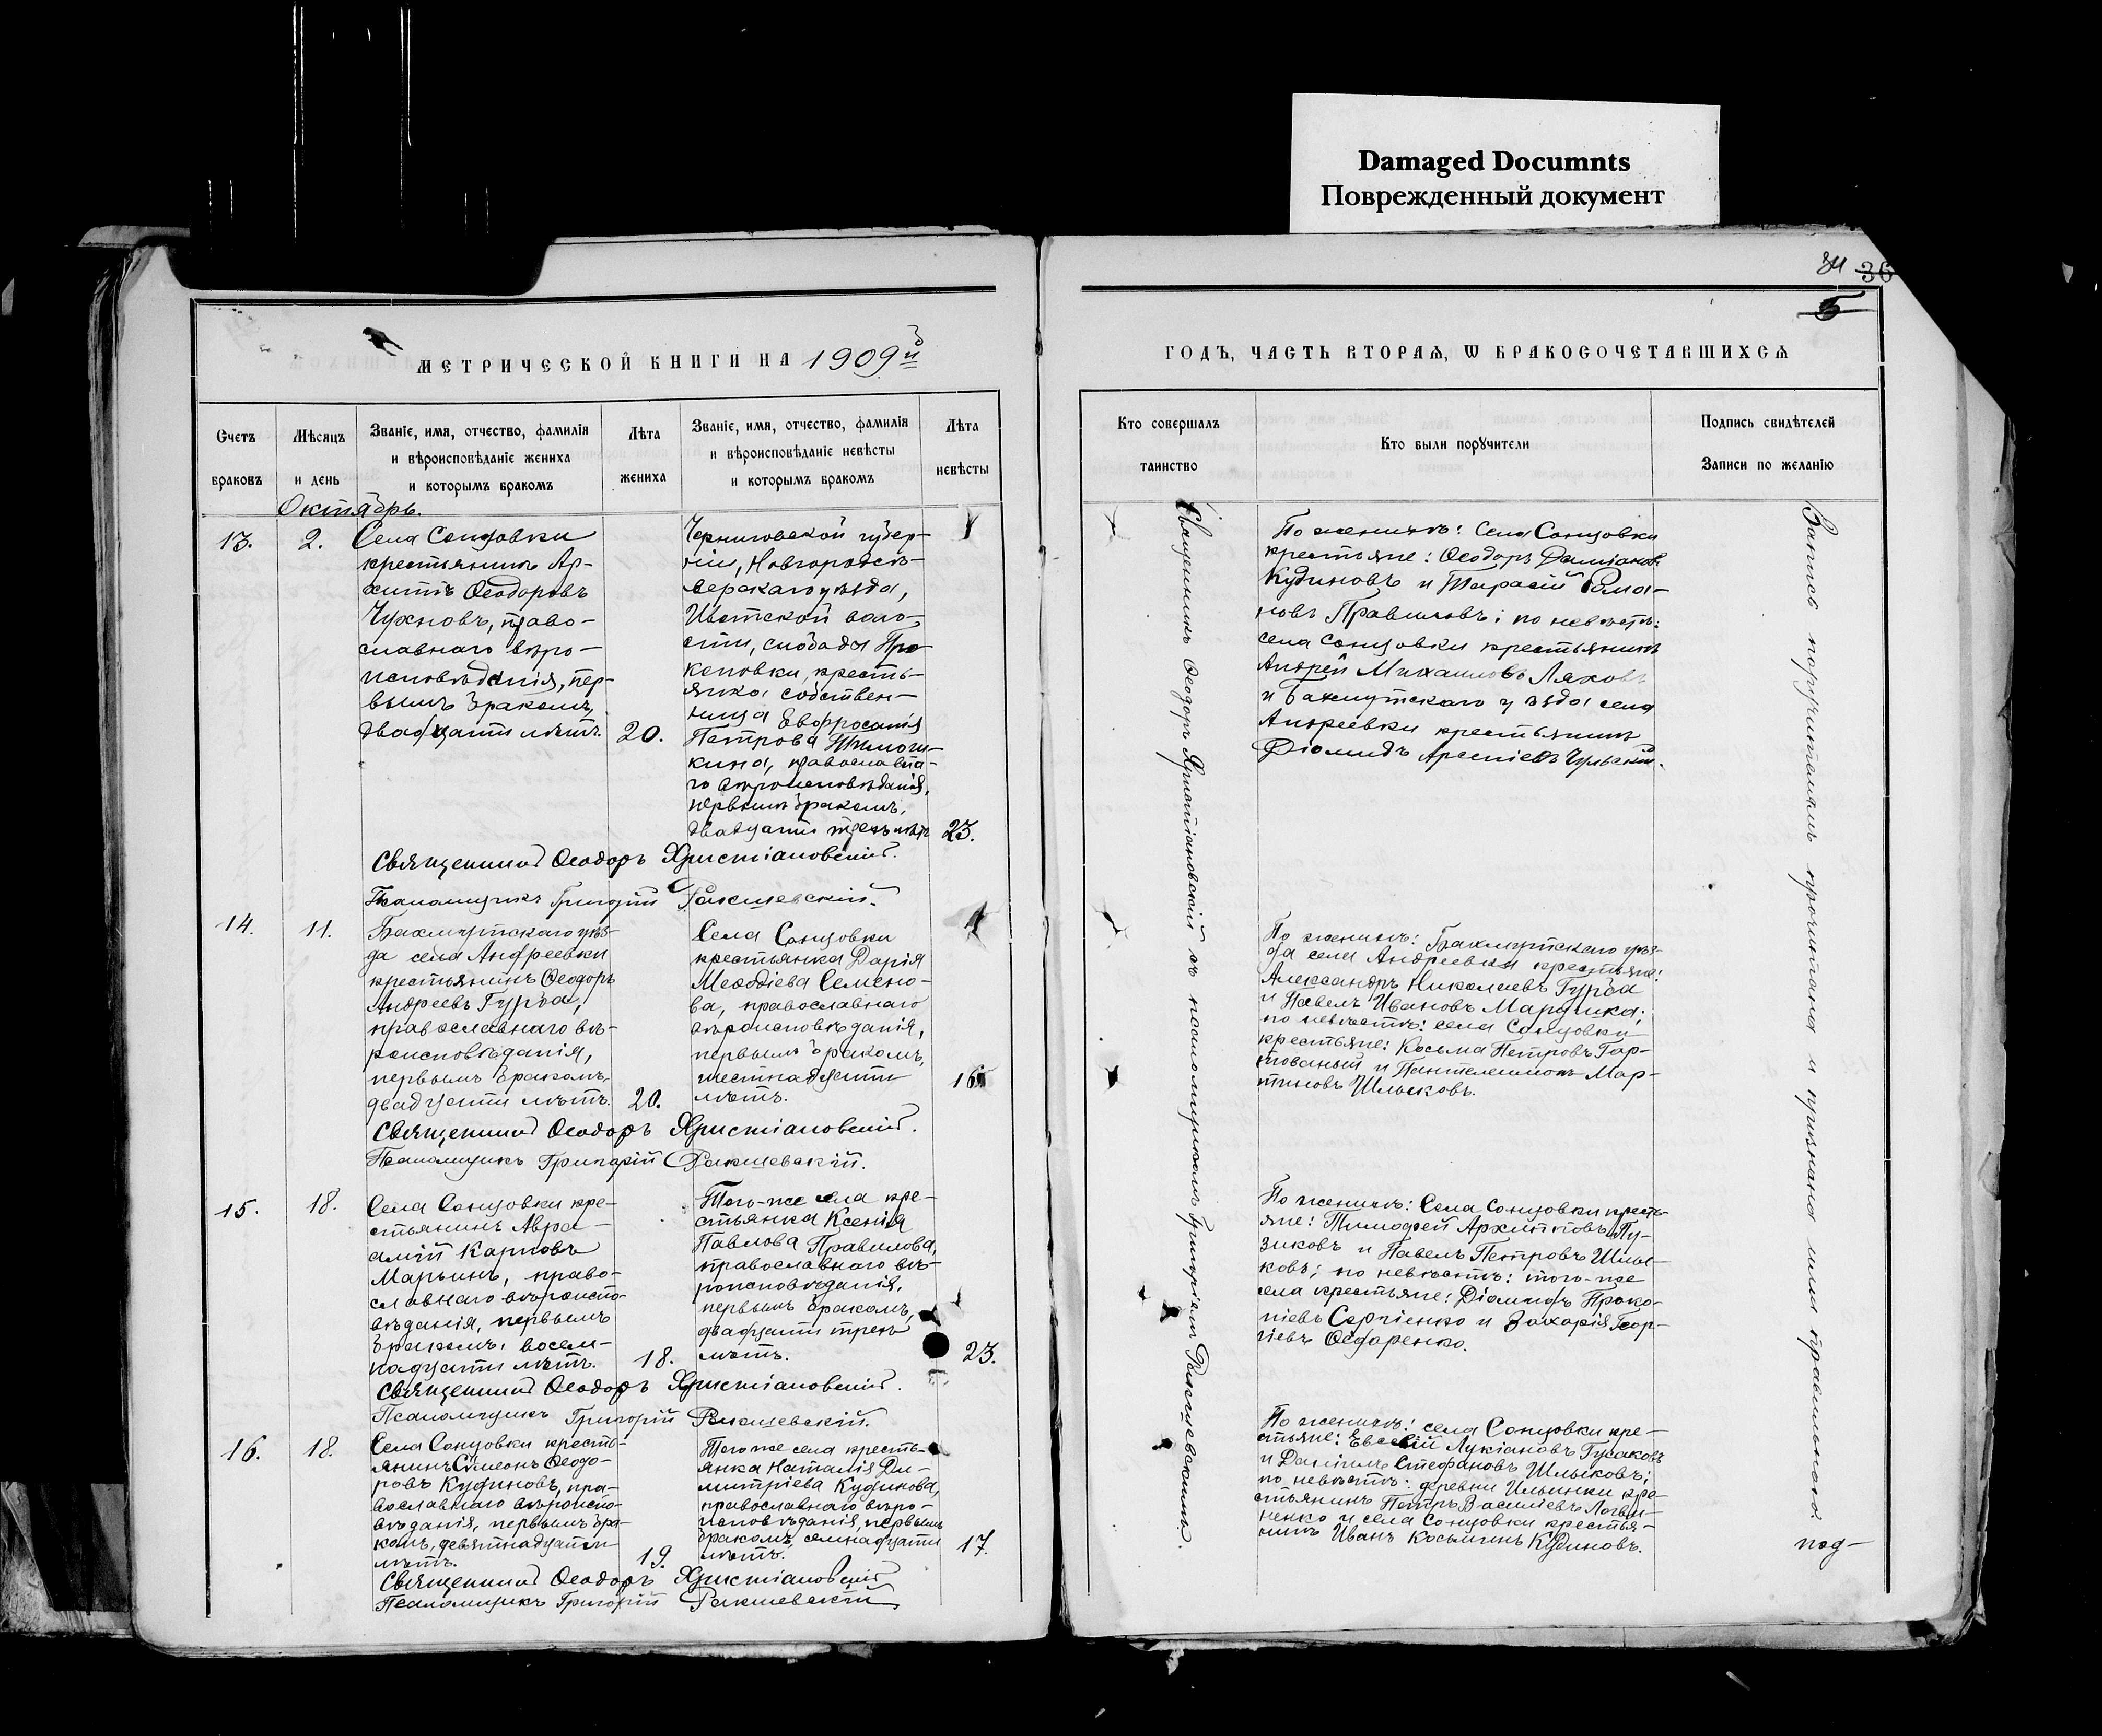 Damaged Documnts
Поврежденный документ
34 36
5
МЕТРИЧЕСКОЙ КНИГИ НА 1909й
Счетъ
браковъ
Мѣсяцъ
и день
Званіе, имя, отчество, фамилія
и вѣроисповѣданіе жениха
и которымъ бракомъ
Лѣта
жениха
Званіе, имя, отчество, фамилія
и вѣроисповѣданіе невѣсты
и которымъ бракомъ
Лѣта
невѣсты
Октябрь.
13.
2.
Села Сонцовки
крестьянинъ Ар-
хиппъ Ѳеодоровъ
Чухновъ, право-
славнаго вѣро-
исповѣданія, пер-
вымъ бракомъ,
двадцати лѣтъ.
20.
Черниговской губер-
ніи, Новгородсѣ-
верскаго уѣзда,
воло-
сти, слободы Про
коповки, кресть-
янка собствен-
ница Евфросинія
Петрова
кина, православна-
го вѣроисповѣданія,
первымъ бракомъ,
двадцати трехъ лѣтъ
23.
Священникъ Ѳеодоръ Христіановскій.
Псаломщикъ Григорій Ракшевскій.
14.
11.
Бахмутскаго уѣз-
да села Андреевки
крестьянинъ Ѳеодоръ
Андреевъ Гурба,
православнаго вѣ-
роисповѣданія,
первымъ бракомъ,
двадцати лѣтъ.
20.
Села Сонцовки
крестьянка Дарія
Меѳодіева Семено-
ва, православнаго
вѣроисповѣданія,
первымъ бракомъ,
шестнадцати
лѣтъ.
16
Священникъ Ѳеодоръ Христіановскій.
Псаломщикъ Григорій Ракшевскій.
15.
18.
Села Сонцовки кре-
стьянинъ Авра-
амій Карповъ
Марьинъ, право-
славнаго вѣроиспо-
вѣданія, первымъ
бракомъ, восем-
надцати лѣтъ.
18.
Того-же села кре-
стьянка Ксенія
Павлова Правилова,
православнаго вѣ-
роисповѣданія,
первымъ бракомъ,
двадцати трехъ
лѣтъ.
23.
Священникъ Ѳеодоръ Христіановскій.
Псаломщикъ Григорій Ракшевскій.
16.
18.
Села Сонцовки кресть-
янинъ Симеонъ Ѳеодо-
ровъ Кудиновъ, пра-
вославнаго вѣроиспо-
вѣданія, первымъ бра-
комъ, девятнадцати
лѣтъ.
19.
Того же села кресть-
янка Наталія Ди-
митріева Кудинова,
православнаго вѣро-
исповѣданія, первымъ
бракомъ, семнадцати
лѣтъ.
17.
Священникъ Ѳеодоръ Христіановскій
Псаломщикъ Григорій Ракшевскій
ГОДЪ, ЧАСТЬ ВТОРАЯ, Ѡ БРАКОСОЧЕТАВШИХСЯ
Кто совершалъ
таинство
Кто были порꙋчители
Подпись свидѣтелей
Записи по желанію
Священникъ Ѳеодоръ Христіановскій съ псаломщикомъ Григоріемъ Ракшевскимъ.
По женихѣ: Села Сонцовки
крестьяне: Ѳеодоръ Даміановъ
Кудиновъ и Тарасій Рома-
новъ Правиловъ; по невѣстѣ:
села Сонцовки крестьянинъ
Андрей Михаиловъ Ляховъ
и Бахмутскаго уѣзда села
Андреевки крестьянинъ
Діомидъ Арсеніевъ
По женихѣ: Бахмутскаго уѣз-
да села Андреевки крестьяне:
Александръ Николаевъ Гурба
и Павелъ Ивановъ Марущка;
по невѣстѣ: села Сонцовки
крестьяне: Косьма Петровъ Гор-
тованый и Пантелеимонъ Мар-
тиновъ Шлыковъ.
По женихѣ: Села Сонцовки кресть-
яне: Тимоѳей Архипповъ Пу-
зиковъ и Павелъ Петровъ Шлы-
ковъ; по невѣстѣ: того-же
села крестьяне: Діомидъ Проко-
піевъ Сергіенко и Захарія Геор-
гіевъ Ѳедоренко.
По женихѣ: села Сонцовки кре-
стьяне: Евсевій Лукіановъ Гусаковъ
и Даніилъ Стефановъ Шлыковъ;
по невѣстѣ: деревни Ильинки кре-
стьянинъ Петръ Василіевъ Логви-
ненко и села Сонцовки крестья-
нинъ Иванъ Косьминъ Кудиновъ.
Запись поручителямъ прочитана и признана ими правильною под-